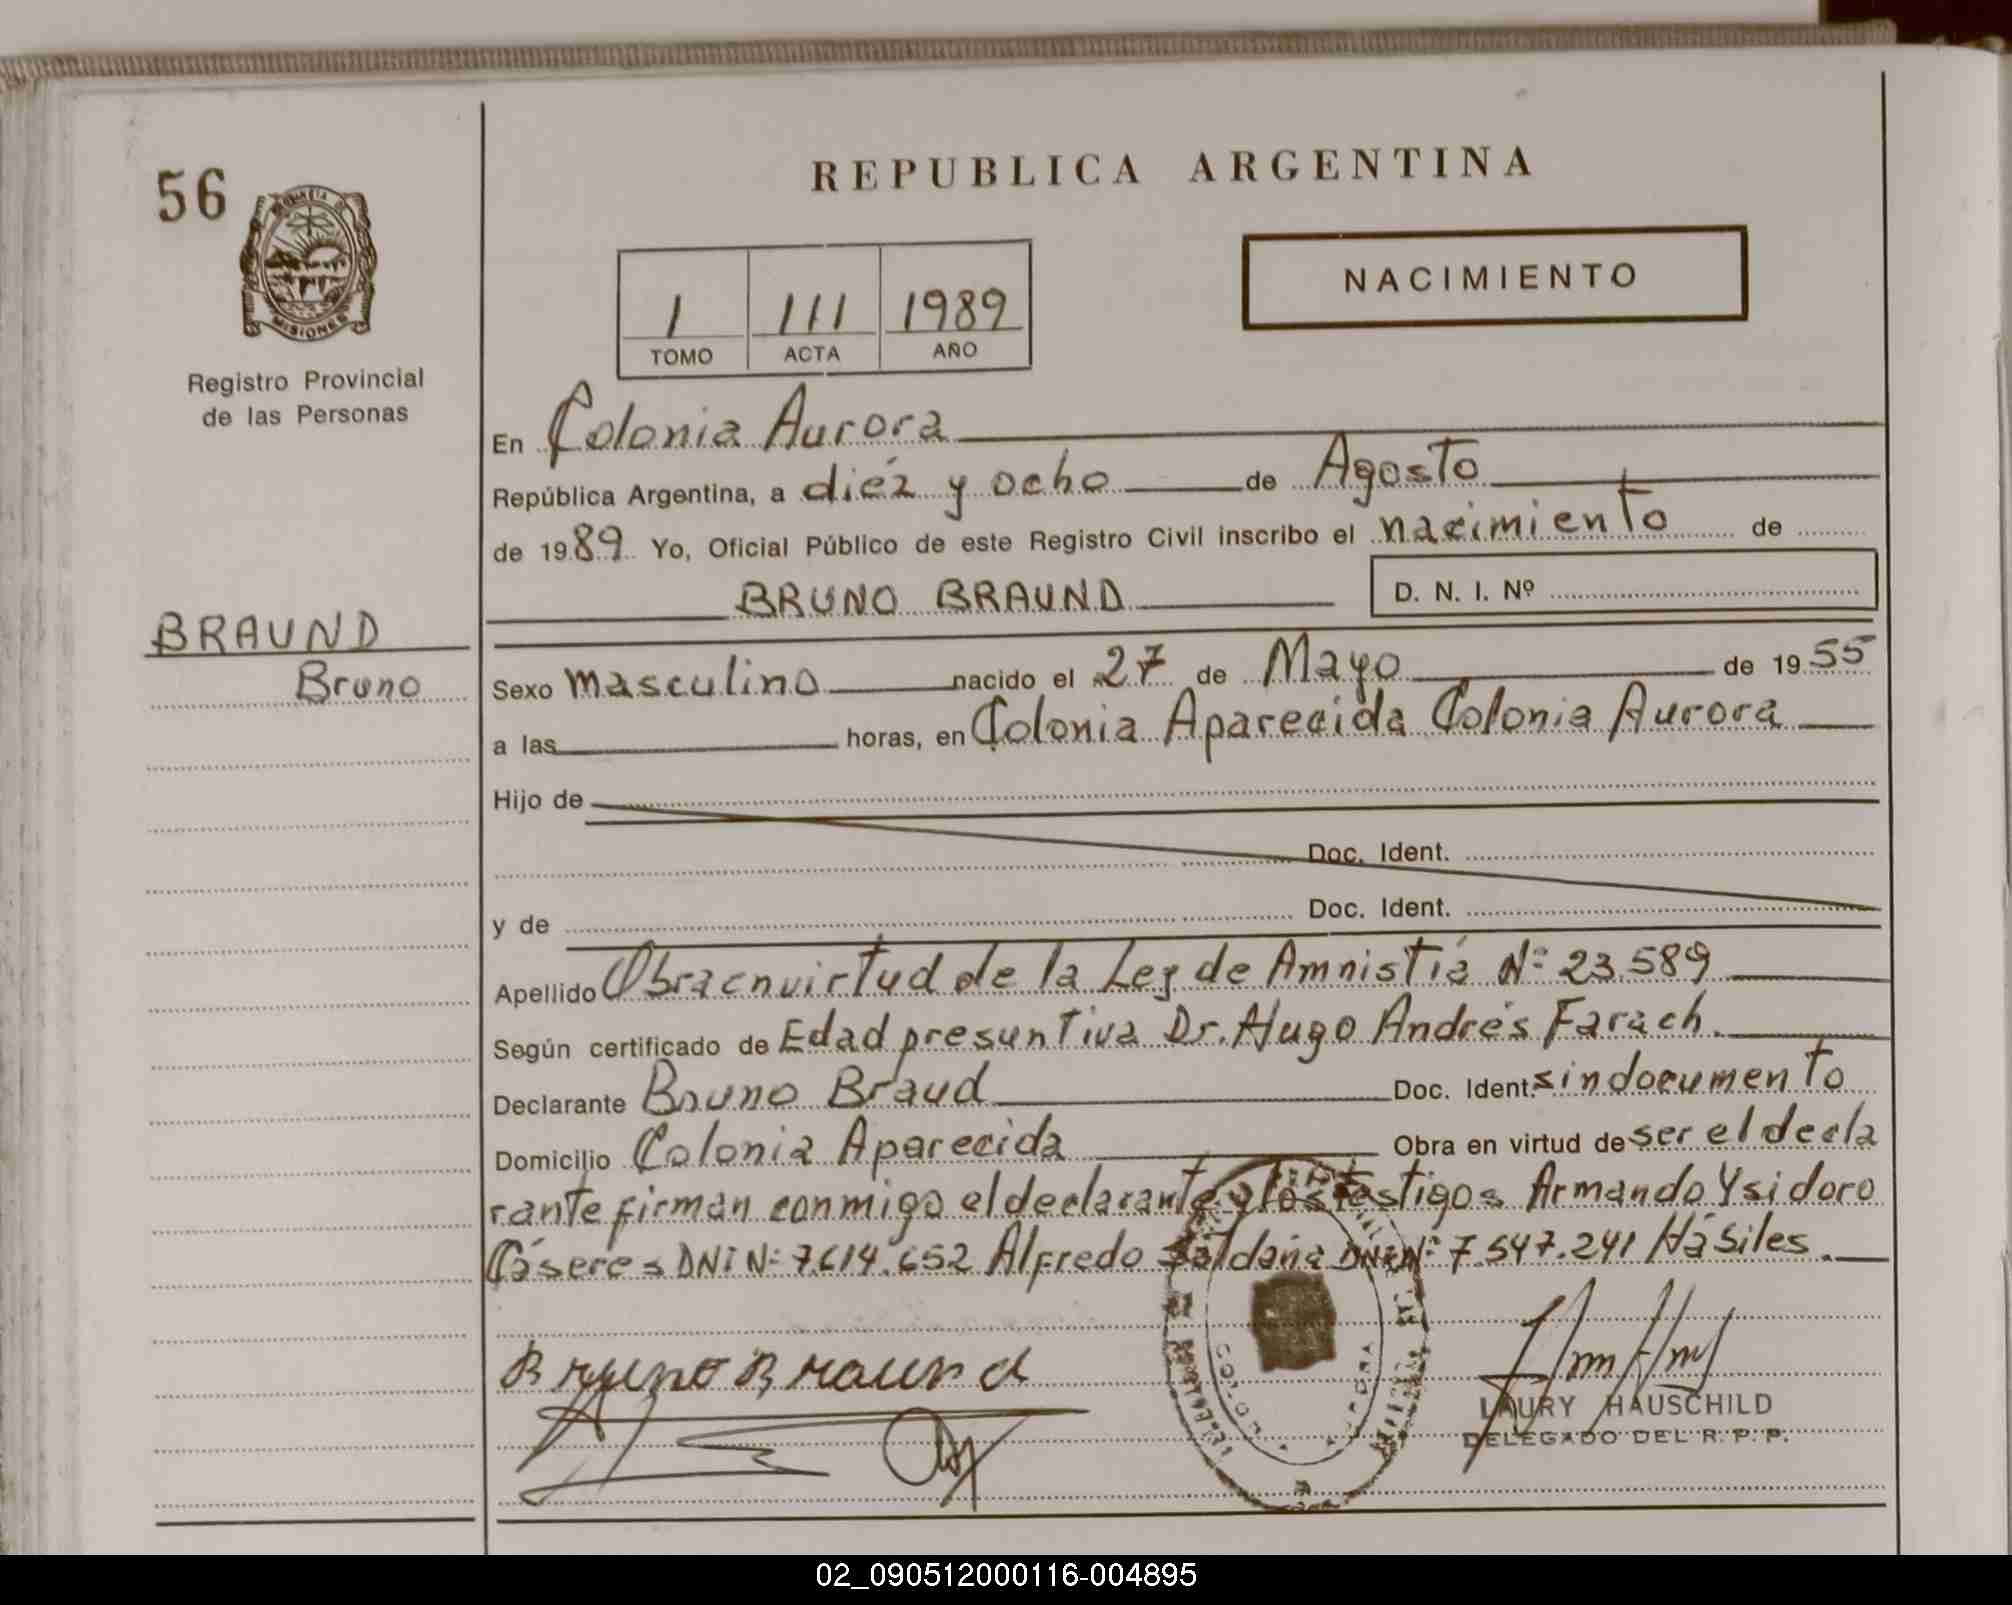 56
PROVINCIA DE
MISIONES
Registro Provincial
de las Personas
BRAUND
Bruno
REPUBLICA ARGENTINA
NACIMIENTO
1 111 1989
TOMO ACTA AÑO
En Colonia Aurora
República Argentina, a diéz y ocho de Agosto
de 1989 Yo, Oficial Público de este Registro Civil inscribo el nacimiento de
BRUNO BRAUND D. N. I. Nº
Sexo masculino nacido el 27 de Mayo de 1955
a las horas, en Colonia Aparecida Colonia Aurora
Hijo de
Doc. Ident.
y de Doc. Ident.
Apellido Obra en virtud de la Ley de Amnistía Nº 23.589
Según certificado de Edad presuntiva Dr. Hugo Andrés Farach.
Declarante Bruno Braud Doc. Ident. sin documento
Domicilio Colonia Aparecida Obra en virtud de ser el decla
rante firman conmigo el declarante y los testigos Armando Ysidoro
Cáseres DNI Nº 7.614.652 Alfredo Saldaña DNI Nº 7.547.241 Hábiles.
Bruno Braund
LAURY HAUSCHILD
DELEGADO DEL R. P. P.
02_090512000116-004895